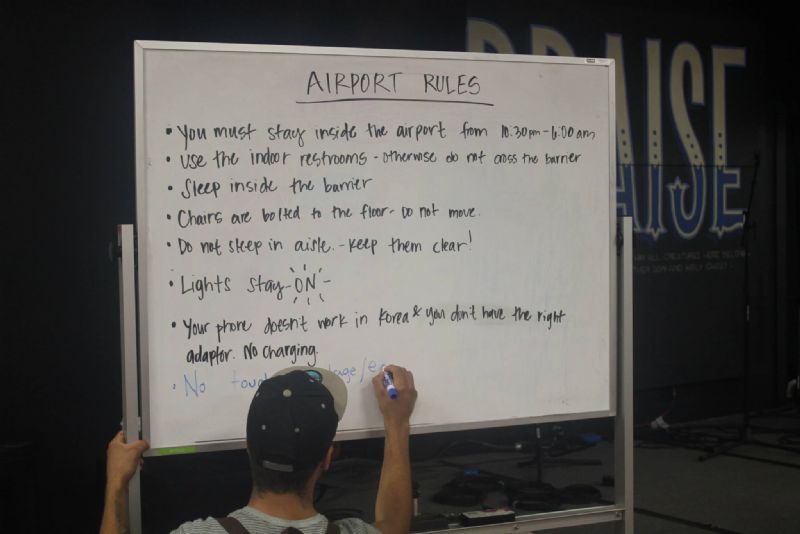 AIRPORT RULES
• You must stay inside the airport from 10:30pm-6:00am
• Use the indoor restrooms - otherwise do not cross the barrier
• Sleep inside the barrier
• Chairs are bolted to the floor - Do not move.
• Do not sleep in aisle. - Keep them clear!
• Lights stay - ON -
• Your phone doesn't work in Korea & you don't have the right
adaptor. No charging.
• No
AISE
ALL CREATURES HERE BELOW